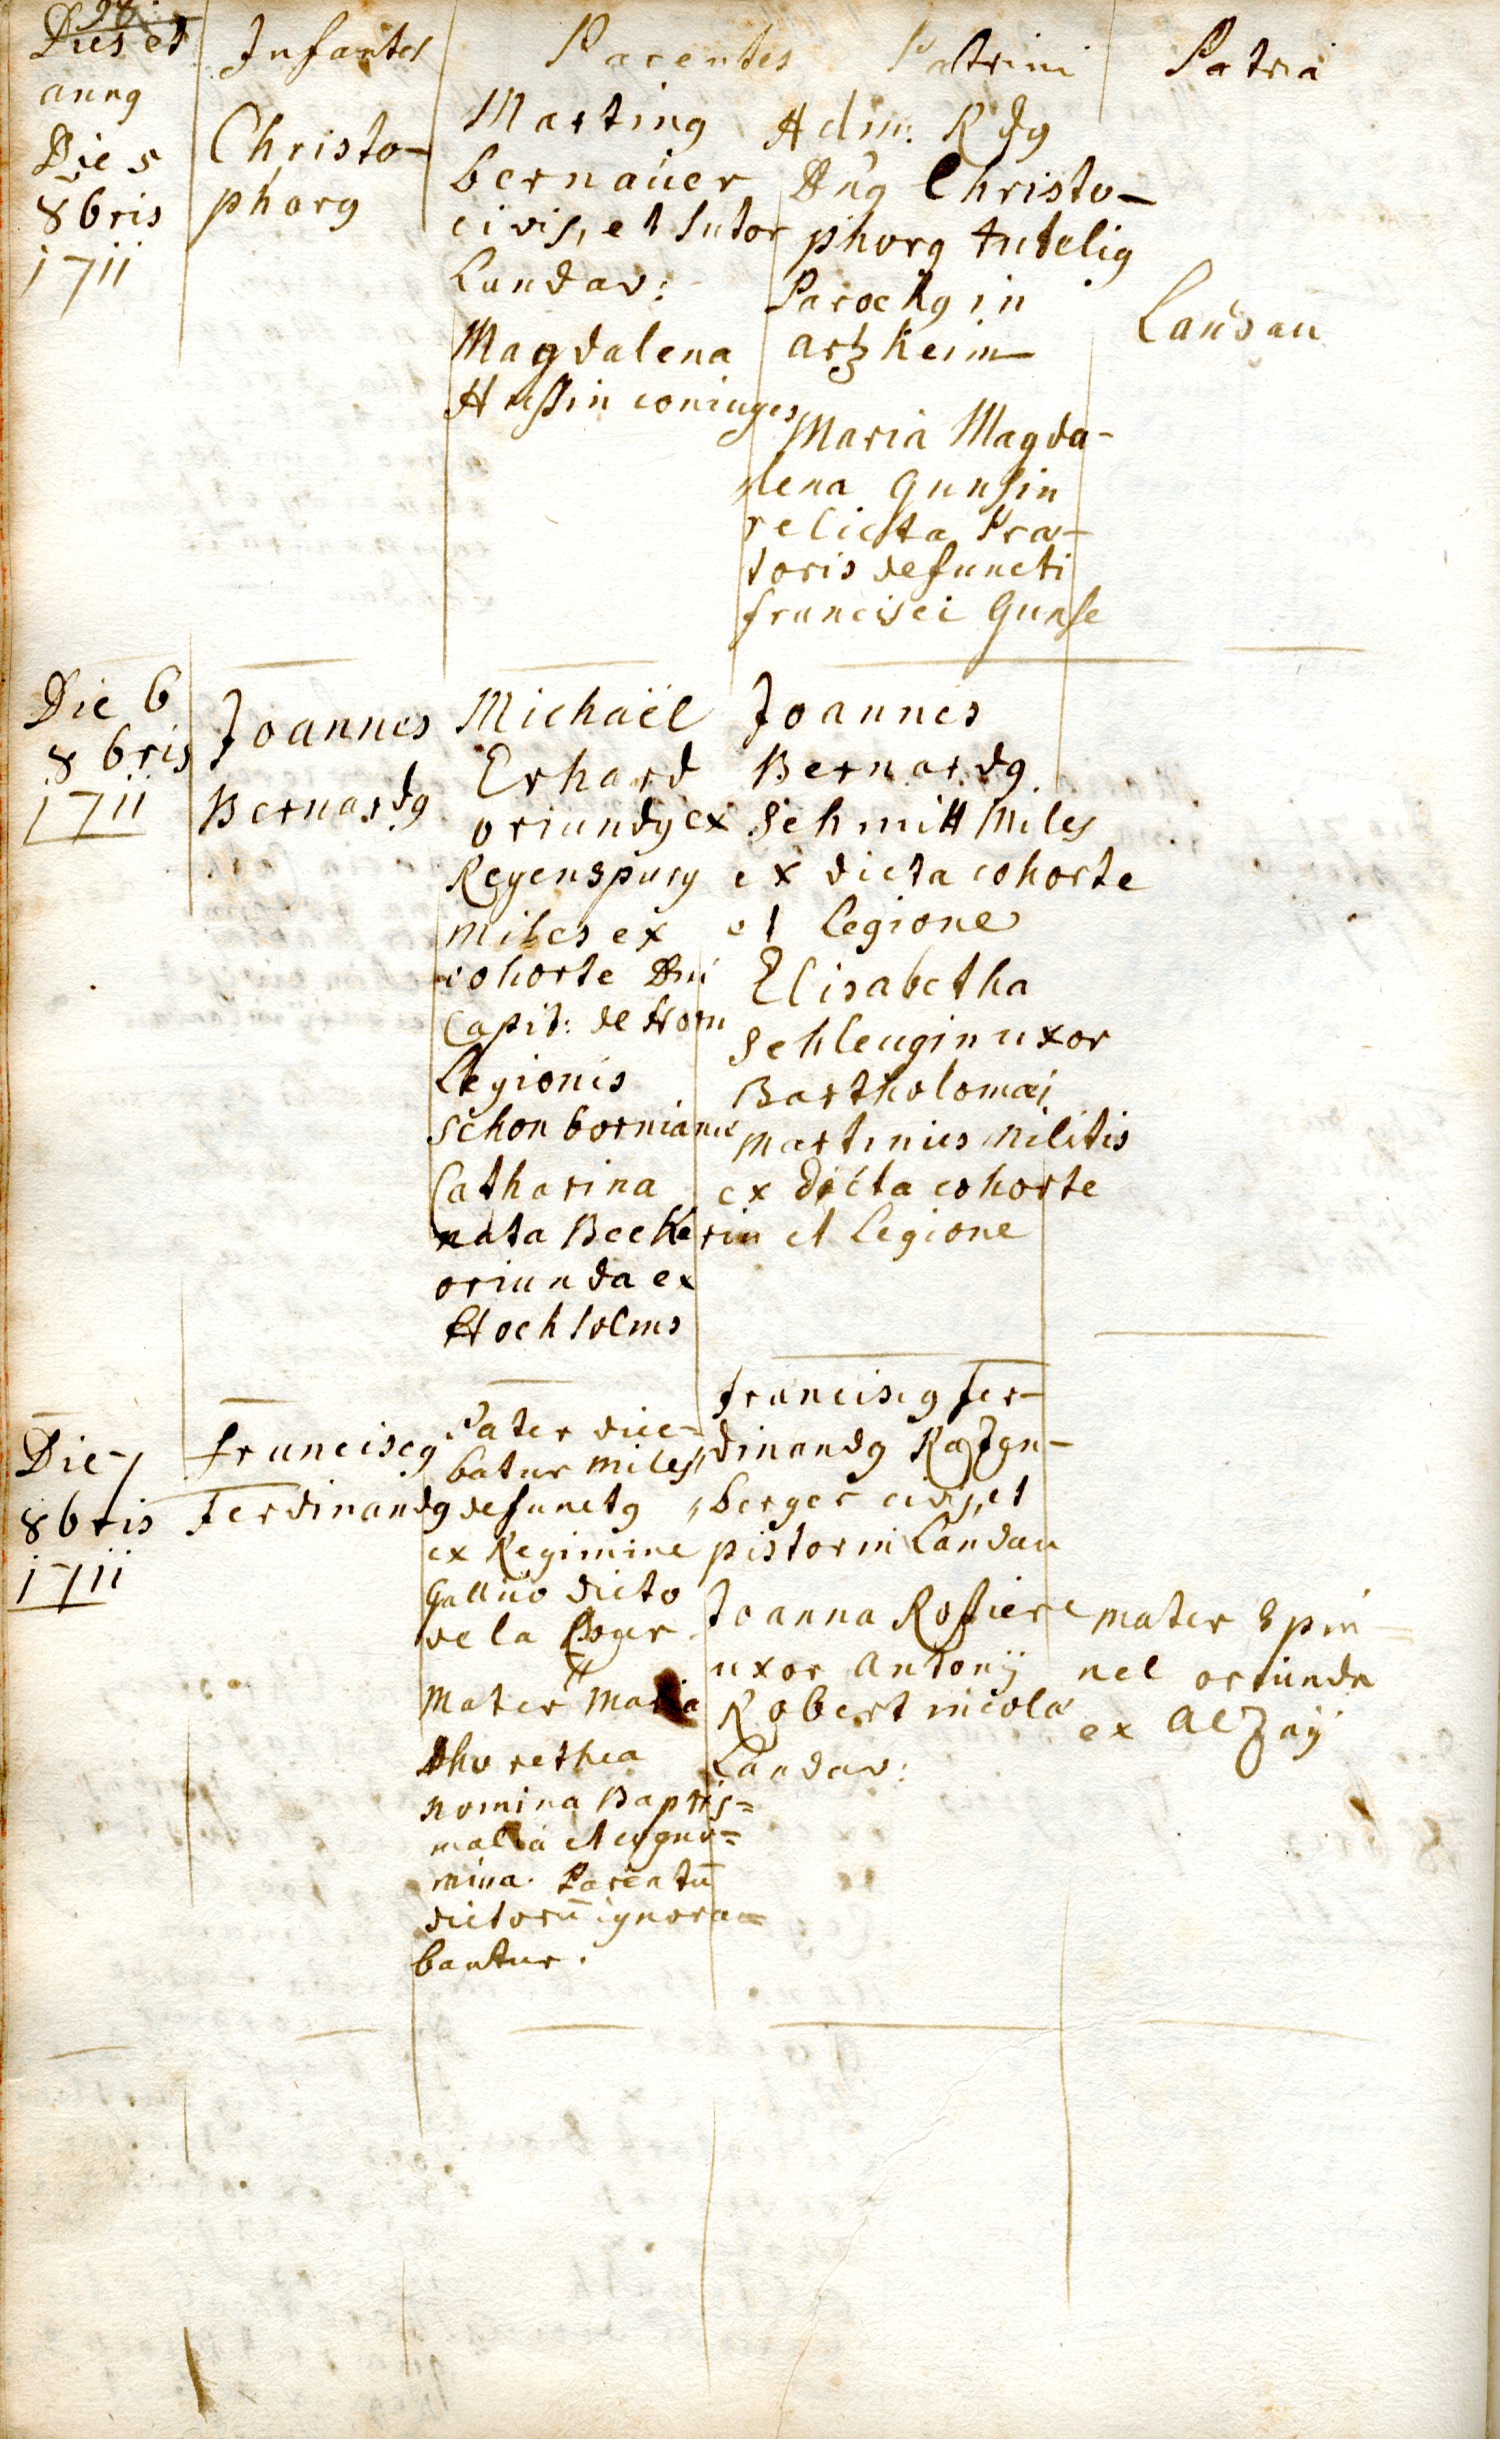 98.
Dies et
annq
Infantes
Parentes
Patrini
Patria
Die 5
8bris
1711
Christo-
phorq
Martinq
bernaüer
civis, et sutor
Landav:
Magdalena
Hussin coniuges
Adm: Rdq
Dnq Christo-
phorq
Parochq in
artzheim
Maria Magda-
lena Gunsin
relicta Præ-
toris defuncti
francisci Gunse
Landau
Die 6
8bris
1711
Joannes
Bernardq
Michaël
Erhard
oriundq ex
Regenspurg
miles ex
cohorte Dni
Capit: de Horn
Legionis
Schonbornianæ
Catharina
nata Beckerin
oriunda ex
Hochsolms
Joannes
Bernardq
Schmitt Miles
ex dicta cohorte
et Legione
Elisabetha
Schleugin uxor
Bartholomæi
Martinies Militis
ex dicta cohorte
et Legione
Die 7
8bris
1711
Franciscq
Ferdinandq
Pater dice=
batur miles
defunctq
ex Regimine
Gallico dicto
de la
Mater Maria
Dhorethea
nomina Baptis=
malia et cogno=
mina Parentū
dictorū ignora=
bantur.
Franciscq Fer-
dinandq
berger civis, et
pistor in Landau
Joanna Rosiere
uxor Antonÿ
Robert incolæ
Landav:
mater Spin=
nel oriunda
ex Alzaÿ